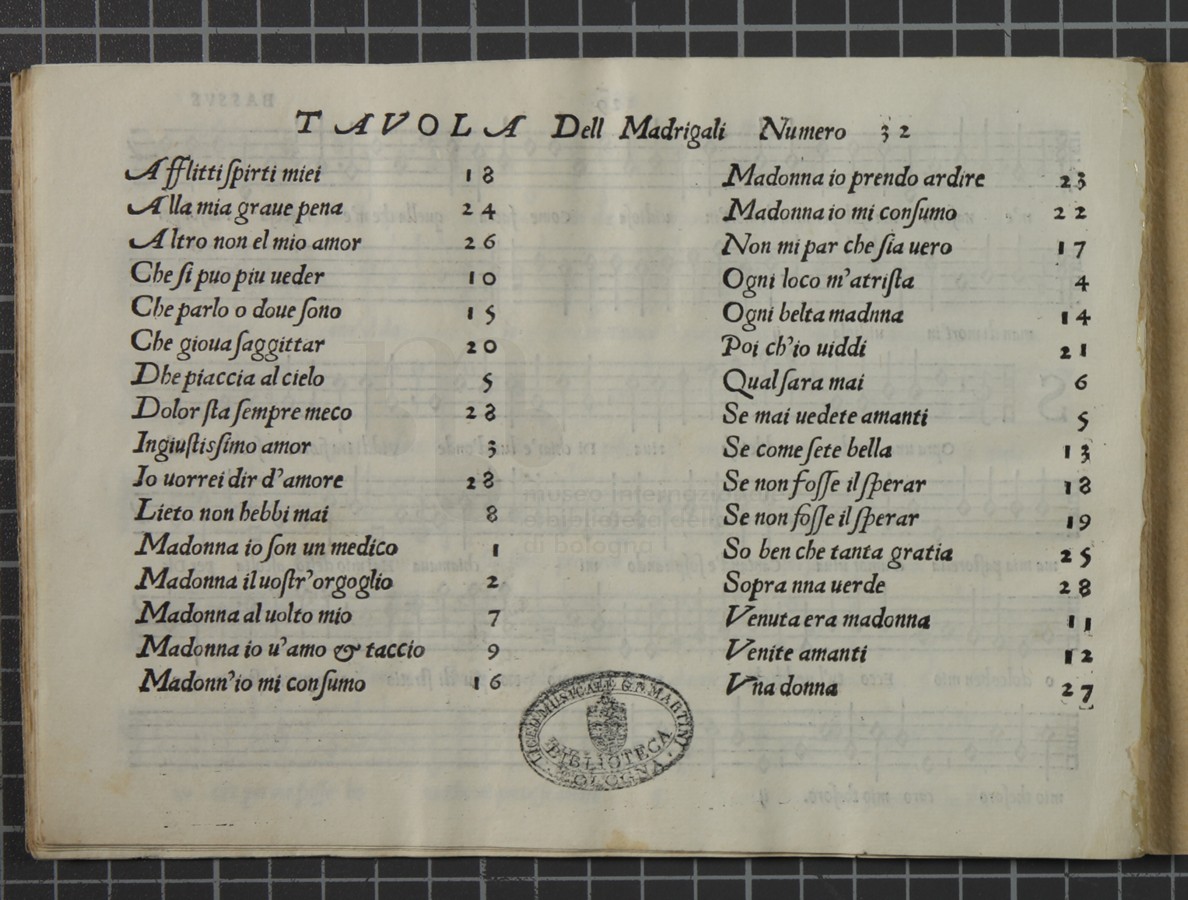 TAVOLA Dell Madrigali Numero 32
Afflitti ſpirti miei 18
Alla mia graue pena 24
Altro non el mio amor 26
Che ſi puo piu ueder 10
Che parlo o doue ſono 15
Che gioua ſaggittar 20
Dhe piaccia al cielo 5
Dolor ſta ſempre meco 28
Ingiuſtisſimo amor 3
Io uorrei dir d'amore 28
Lieto non hebbi mai 8
Madonna io ſon un medico 1
Madonna il uoſtr'orgoglio 2
Madonna al uolto mio 7
Madonna io u'amo & taccio 9
Madonn'io mi conſumo 16
Madonna io prendo ardire 23
Madonna io mi conſumo 22
Non mi par che ſia uero 17
Ogni loco m'atriſta 4
Ogni belta madnna 14
Poi ch'io uiddi 21
Qual ſara mai 6
Se mai uedete amanti 5
Se come ſete bella 13
Se non foſſe il ſperar 18
Se non foſſe il ſperar 19
So ben che tanta gratia 25
Sopra nna uerde 28
Venuta era madonna 11
Venite amanti 12
Vna donna 27
LICEO MUSICALE G.B. MARTINI
BIBLIOTECA
BOLOGNA
museo internazionale
e biblioteca della
di bologna